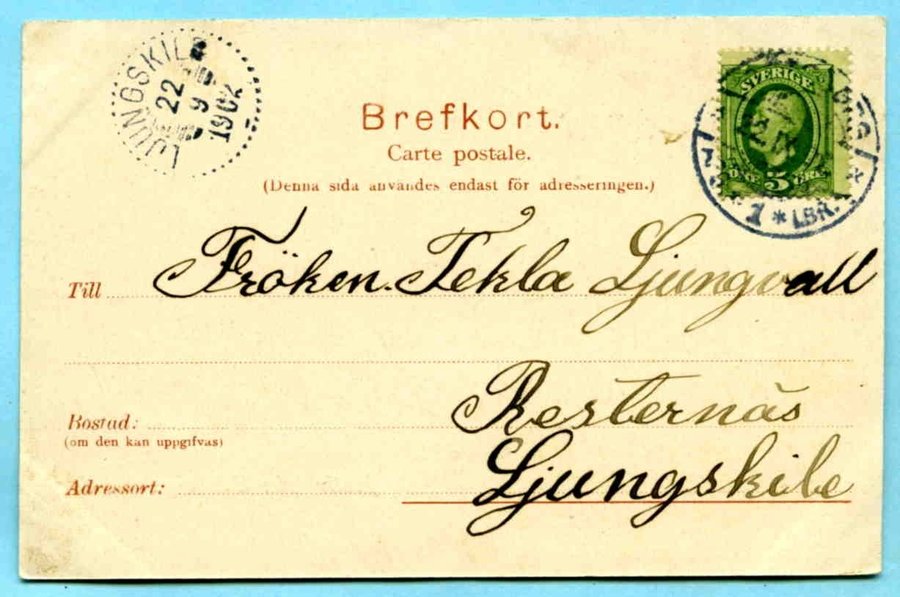 LJUNGSKILE
22
9
1902
SVERIGE
5
ÖRE
1 * LBR.
Brefkort.
Carte postale.
(Denna sida användes endast för adresseringen.)
Till Fröken. Tekla Ljungvall
Bostad: Resternäs
(om den kan uppgifvas)
Adressort: Ljungskile